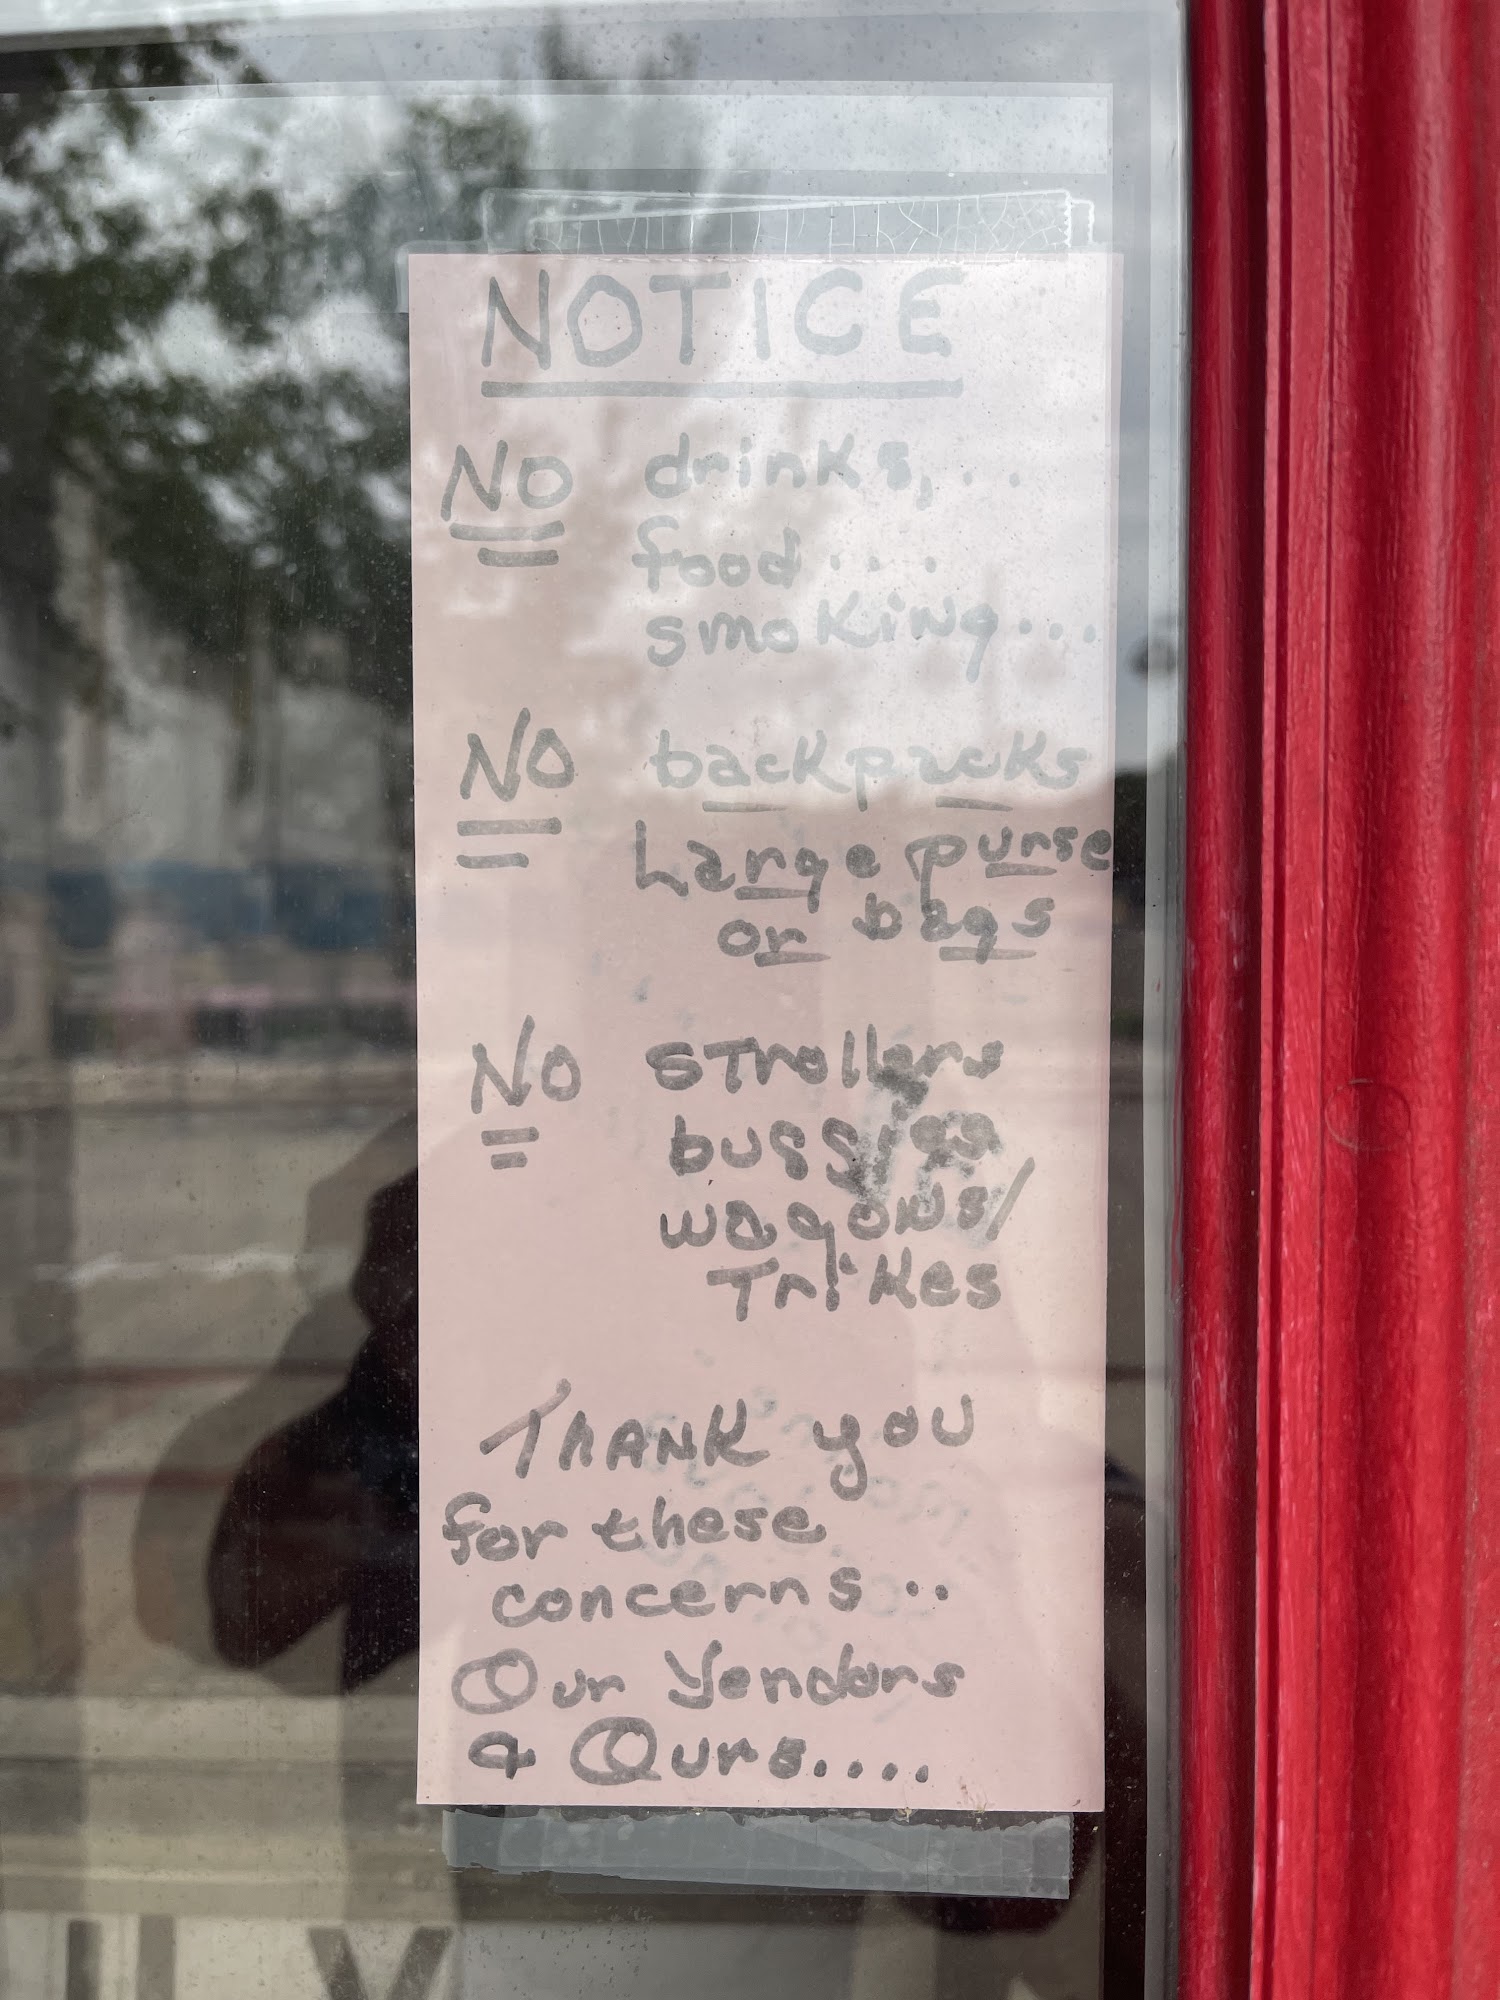 NOTICE
NO drinks,..
food....
smoking...
NO backpacks
Large purse
or bags
NO strollers
buggies
wagons/
Trikes
THANK you
for these
concerns..
Our Vendors
& Ours....